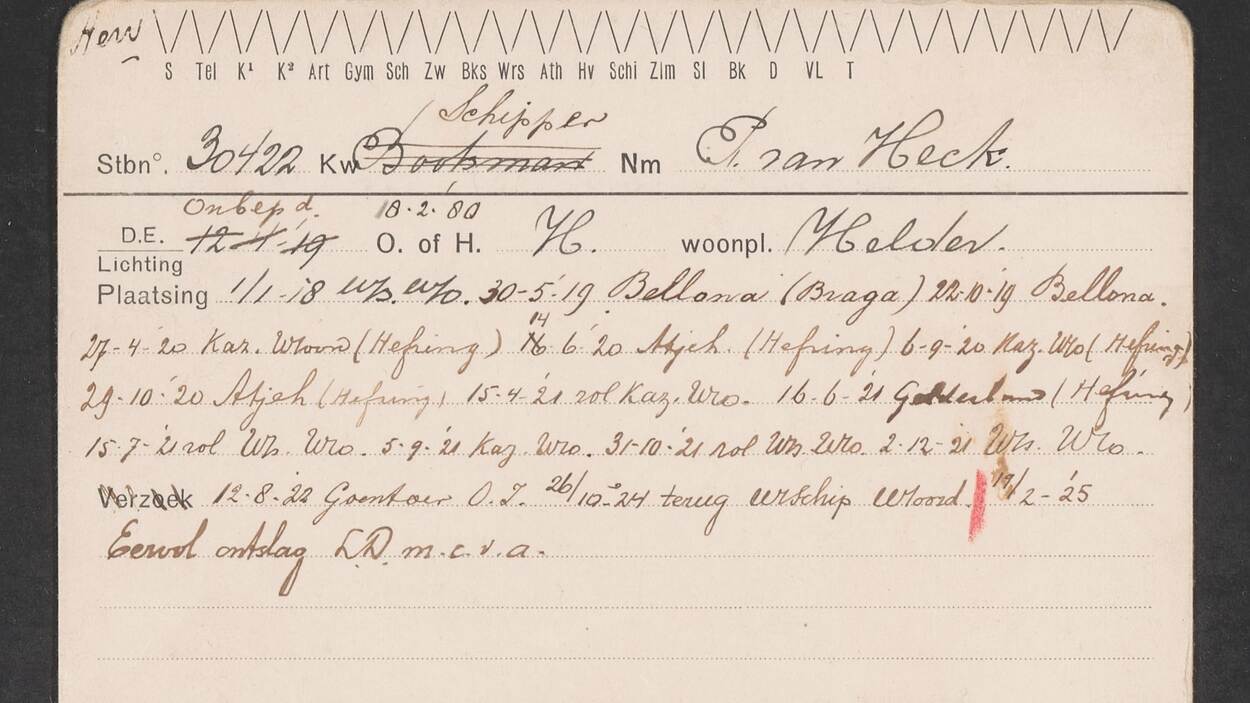 Herv
S Tel K¹ K² Art Gym Sch Zw Bks Wrs Ath Hv Schi Zlm Sl Bk D VL T
Schipper
Stbn°. 30422 Kw Bootsman Nm P. van Heck.
Onbep d. 18-2-'80
D.E. 12-4-'19 O. of H. H. woonpl. Helder.
Lichting
Plaatsing 1/1-'18 Ws. Wo. 30-5-'19 Bellona (Braga) 22-10-'19 Bellona.
14
27-4-'20 Kaz. Woon (Hefring) 16 6-'20 Atjeh. (Hefring) 6-9-'20 Kaz. Wo (Hefring)
29-10-'20 Atjeh (Hefring) 15-4-'21 rol Kaz. Wo. 16-6-'21 Gelderland (Hefring)
15-7-'21 rol Ws. Wo. 5-9-'21 Kaz. Wo. 31-10-'21 rol Ws. Wo. 2-12-21 Ws. Wo.
Verzoek 12-8-22 Goentoer O.I. 26/10-24 terug Wschip Woord. 17/2-'25
Eervol ontslag L.D. m.c.v.a.